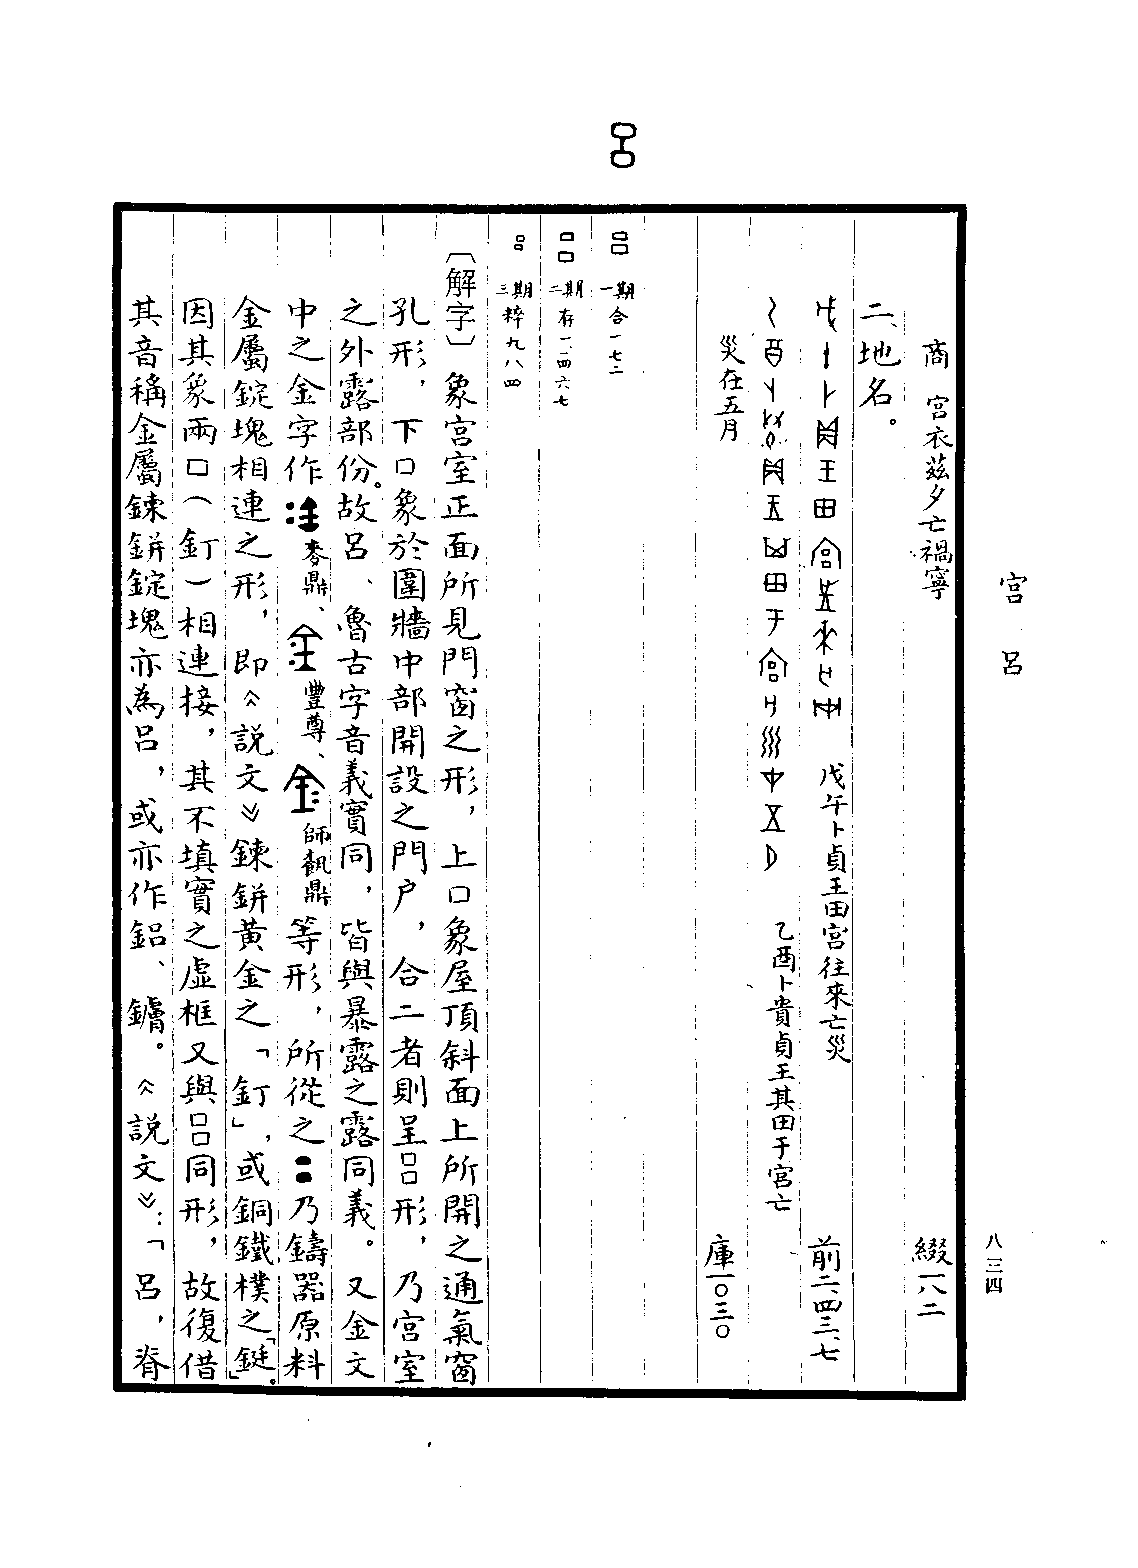 宮 呂
八三四
呂
商 宮衣茲夕亡禍寧 綴一八二
二、地名。
戊午卜貞王田宮往來亡災 前二、四三、七
乙酉卜貴貞王其田于宮亡
災在五月 庫一〇三〇
一期合一七三
二期存一、四六七
三期粹九八四
〔解字〕象宮室正面所見門窗之形，上口象屋頂斜面上所開之通氣窗
孔形，下口象於圍牆中部開設之門戶，合二者則呈吕形，乃宮室
之外露部份。故呂、魯古字音義實同，皆與暴露之露同義。又金文
中之金字作麥鼎、豐尊、師𩛥鼎等形，所從之乃鑄器原料
金屬錠塊相連之形，即《說文》鍊鉼黃金之「釘」，或銅鐵樸之「鋌」。
因其象兩口（釘）相連接，其不填實之虛框又與吕同形，故復借
其音稱金屬鍊鉼錠塊亦為呂，或亦作鋁、鑪。《說文》：「呂，脊